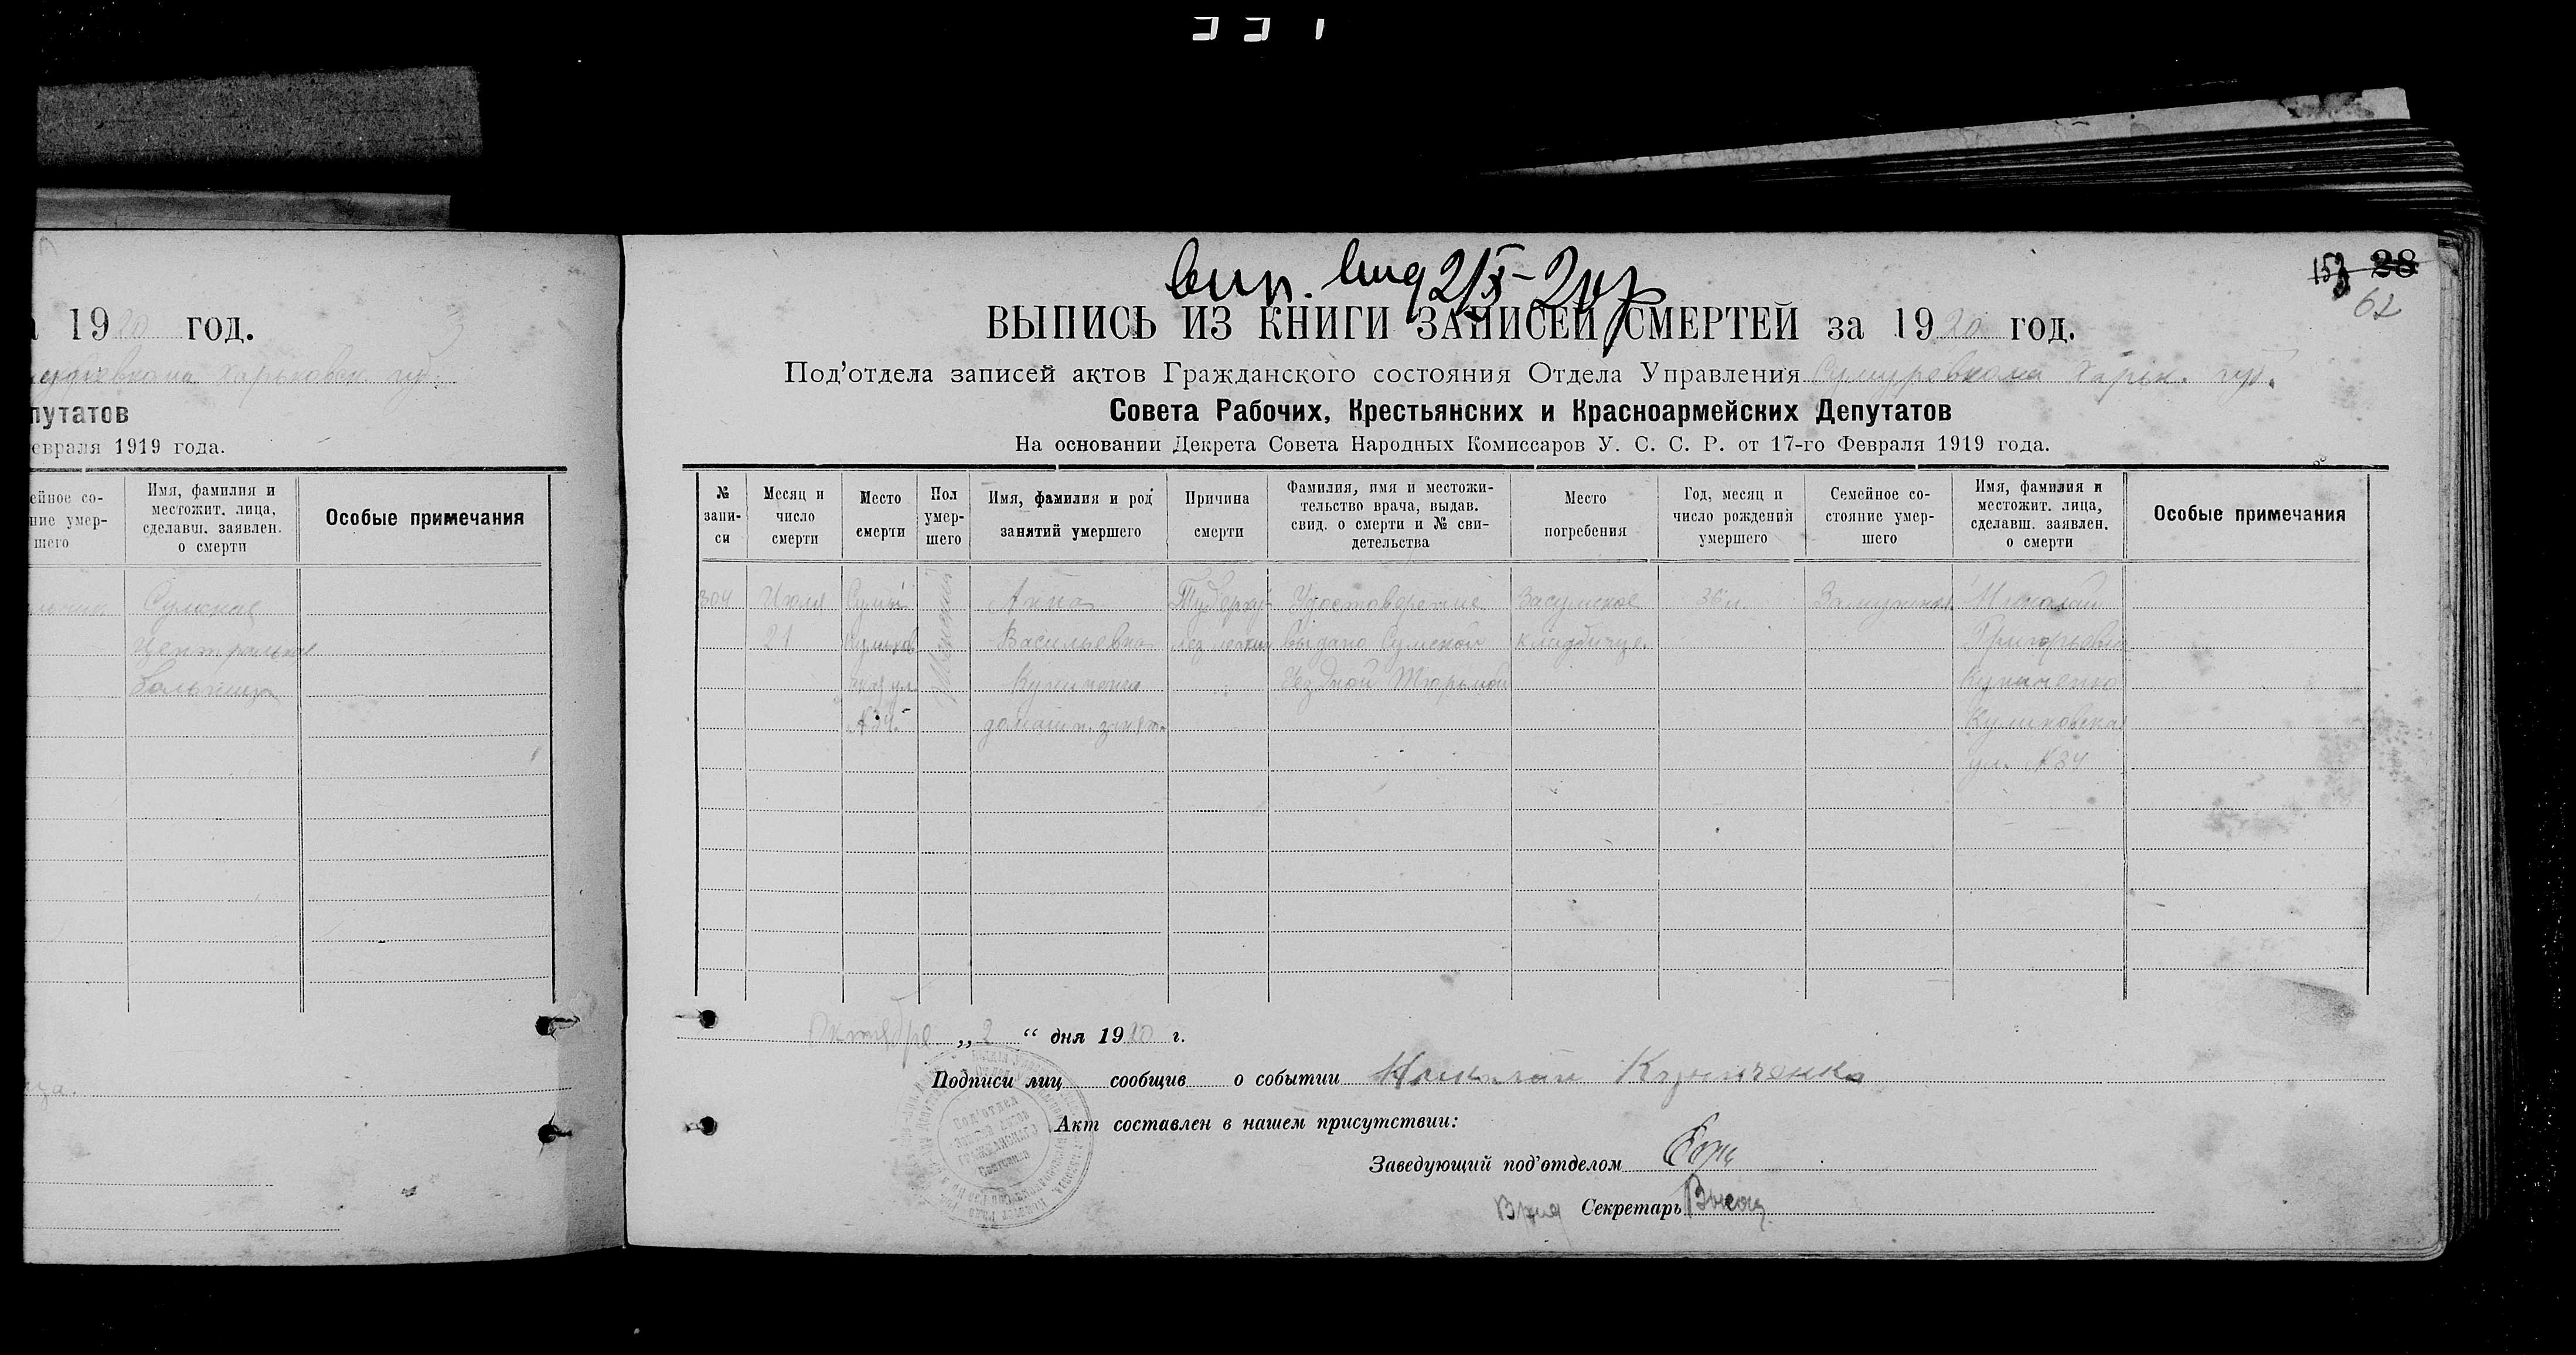 вип. вид 2/X-20 р
153 28
62
19 20 год.
Харьковск. губ.
путатов
евраля 1919 года.
ейное со-
ние умер-
шего
Имя, фамилия и
местожит. лица,
сделавш. заявлен.
о смерти
Особые примечания
Сумская
центральная
больница
ВЫПИСЬ ИЗ КНИГИ ЗАПИСЕЙ СМЕРТЕЙ за 1920 год.
Под’отдела записей актов Гражданского состояния Отдела Управления Сумуревкома Харьк. губ.
Совета Рабочих, Крестьянских и Красноармейских Депутатов
На основании Декрета Совета Народных Комиссаров У. С. С. Р. от 17-го Февраля 1919 года.
№
запи-
си
Месяц и
число
смерти
Место
смерти
Пол
умер-
шего
Имя, фамилия и род
занятий умершего
Причина
смерти
Фамилия, имя и местожи-
тельство врача, выдав.
свид. о смерти и № сви-
детельства
Место
погребения
Год, месяц и
число рождения
умершего
Семейное со-
стояние умер-
шего
Имя, фамилия и
местожит. лица,
сделавш. заявлен.
о смерти
Особые примечания
304
Июля
21
Сумы
Куликов
ская ул.
№ 34
Женский
Анна
Васильевна
Куниченко
домашн. занят.
Туберку-
лез легких
Удостоверение
выдано Сумской
Уездной Тюрьмой
Засумское
кладбище.
36 л.
Замужняя
Николай
Григорьевич
Куниченко
Куликовская
ул. № 34
Октября „ 2 “ дня 1920 г.
Подписи лиц сообщив о событии Николай Куниченко
Акт составлен в нашем присутствии:
Заведующий под’отделом
Врид Секретарь
Под'отдел
Записи актов
Гражданского
Состояния